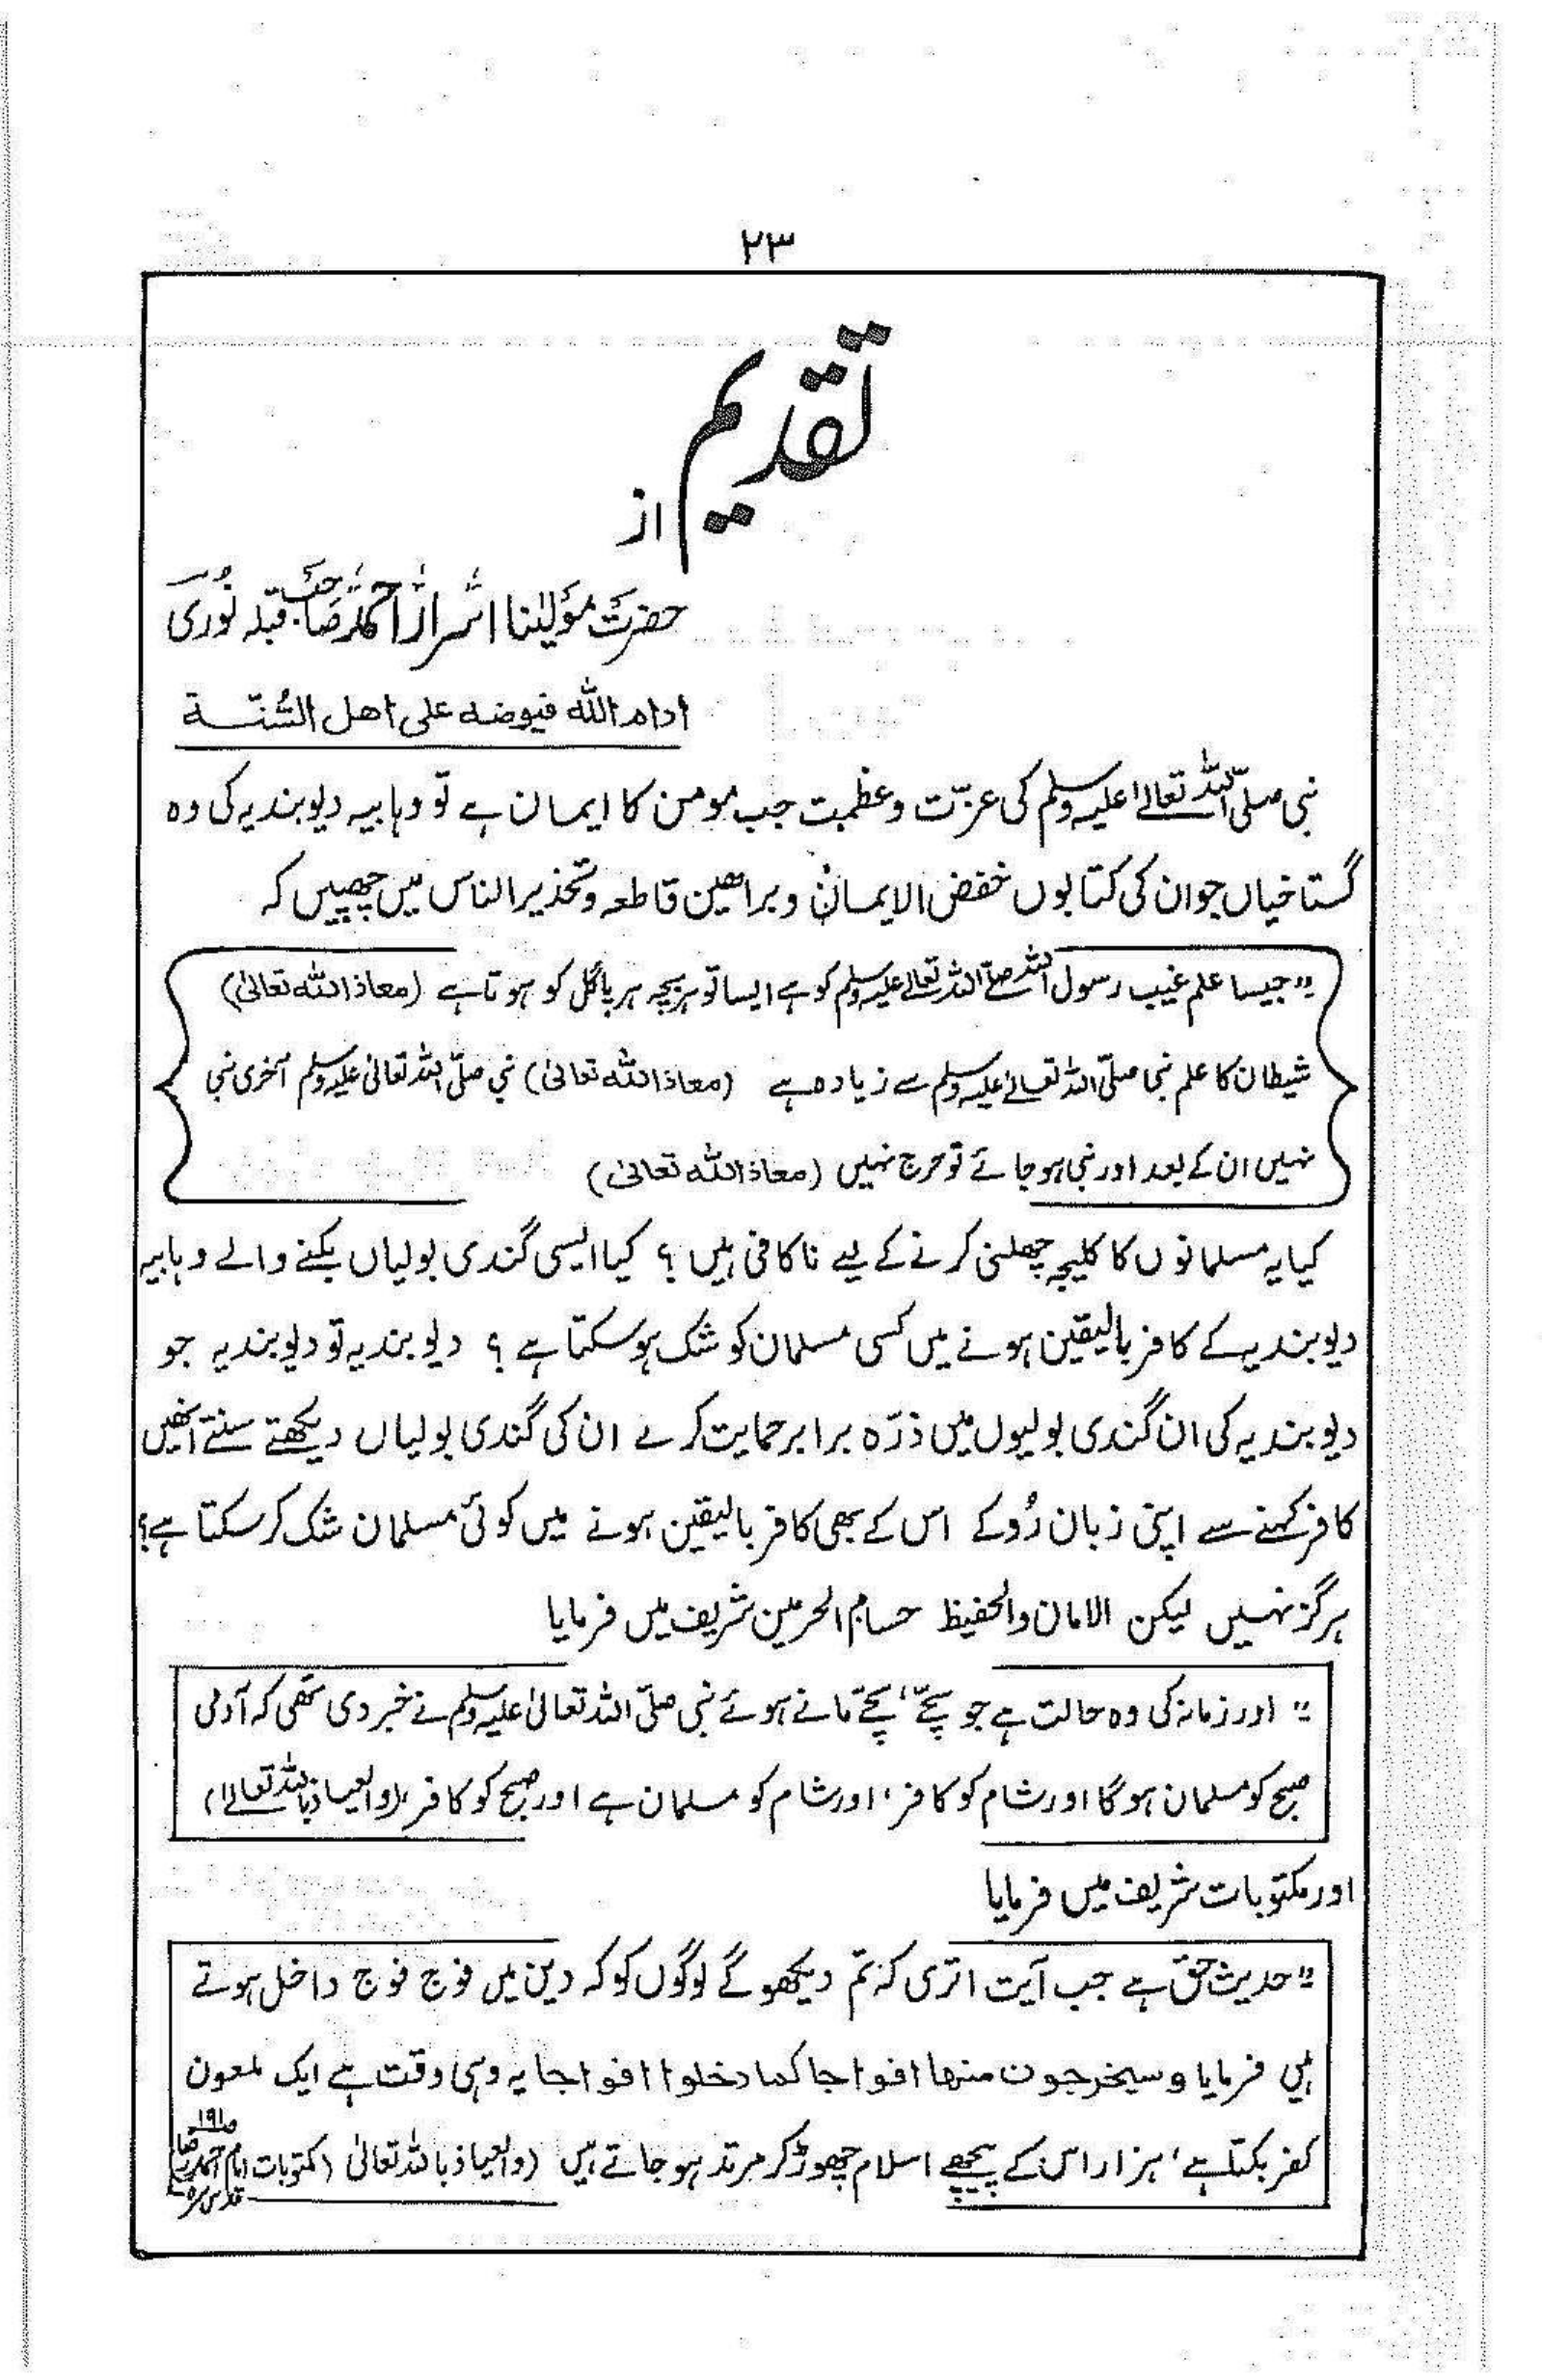 ۲۳
تقدیم
از
حضرت مولیٰنا اسرار احمد صاحب قبلہ نوری
ادام اللہ فیوضہ علی اھل السُّنّۃ
نبی صلّی اللہ تعالیٰ علیہ وسلم کی عزّت و عظمت جب مومن کا ایمان ہے تو وہابیہ دیوبندیہ کی وہ
گستاخیاں جو ان کی کتابوں خفض الایمان و براھین قاطعہ و تحذیر الناس میں چھپیں کہ
"جیسا علم غیب رسول اللہ صلّی اللہ تعالیٰ علیہ وسلم کو ہے ایسا تو ہر بچہ ہر پاگل کو ہوتا ہے (معاذ اللہ تعالیٰ)
شیطان کا علم نبی صلّی اللہ تعالیٰ علیہ وسلم سے زیادہ ہے (معاذ اللہ تعالیٰ) نبی صلّی اللہ تعالیٰ علیہ وسلم آخری نبی
نہیں ان کے بعد اور نبی ہو جائے تو حرج نہیں (معاذ اللہ تعالیٰ)
کیا یہ مسلمانوں کا کلیجہ چھلنی کرنے کے لیے ناکافی ہیں ؟ کیا ایسی گندی بولیاں بکنے والے وہابیہ
دیوبندیہ کے کافر بالیقین ہونے میں کسی مسلمان کو شک ہو سکتا ہے ؟ دیوبندیہ تو دیوبندیہ جو
دیوبندیہ کی ان گندی بولیوں میں ذرّہ برابر حمایت کرے ان کی گندی بولیاں دیکھتے سنتے انھیں
کافر کہنے سے اپنی زبان رُوکے اس کے بھی کافر بالیقین ہونے میں کوئی مسلمان شک کر سکتا ہے؟
ہرگز نہیں لیکن الامان والحفیظ حسام الحرمین شریف میں فرمایا
" اور زمانہ کی وہ حالت ہے جو سچّے، سچّے مانے ہوئے نبی صلّی اللہ تعالیٰ علیہ وسلم نے خبر دی تھی کہ آدمی
صبح کو مسلمان ہوگا اور شام کو کافر، اور شام کو مسلمان ہے اور صبح کو کافر (والعیاذ باللہ تعالیٰ)
اور مکتوبات شریف میں فرمایا
"حدیث حق ہے جب آیت اتری کہ تم دیکھو گے لوگوں کو کہ دین میں فوج فوج داخل ہوتے
ہیں فرمایا وسیخرجون منها افواجا کما دخلوا افواجا یہ وہی وقت ہے ایک ملعون
کفر بکتا ہے، ہزار اس کے پیچھے اسلام چھوڑ کر مرتد ہو جاتے ہیں (والعیاذ باللہ تعالیٰ (مکتوبات امام احمد رضا قدس سرہ ص۱۹۱